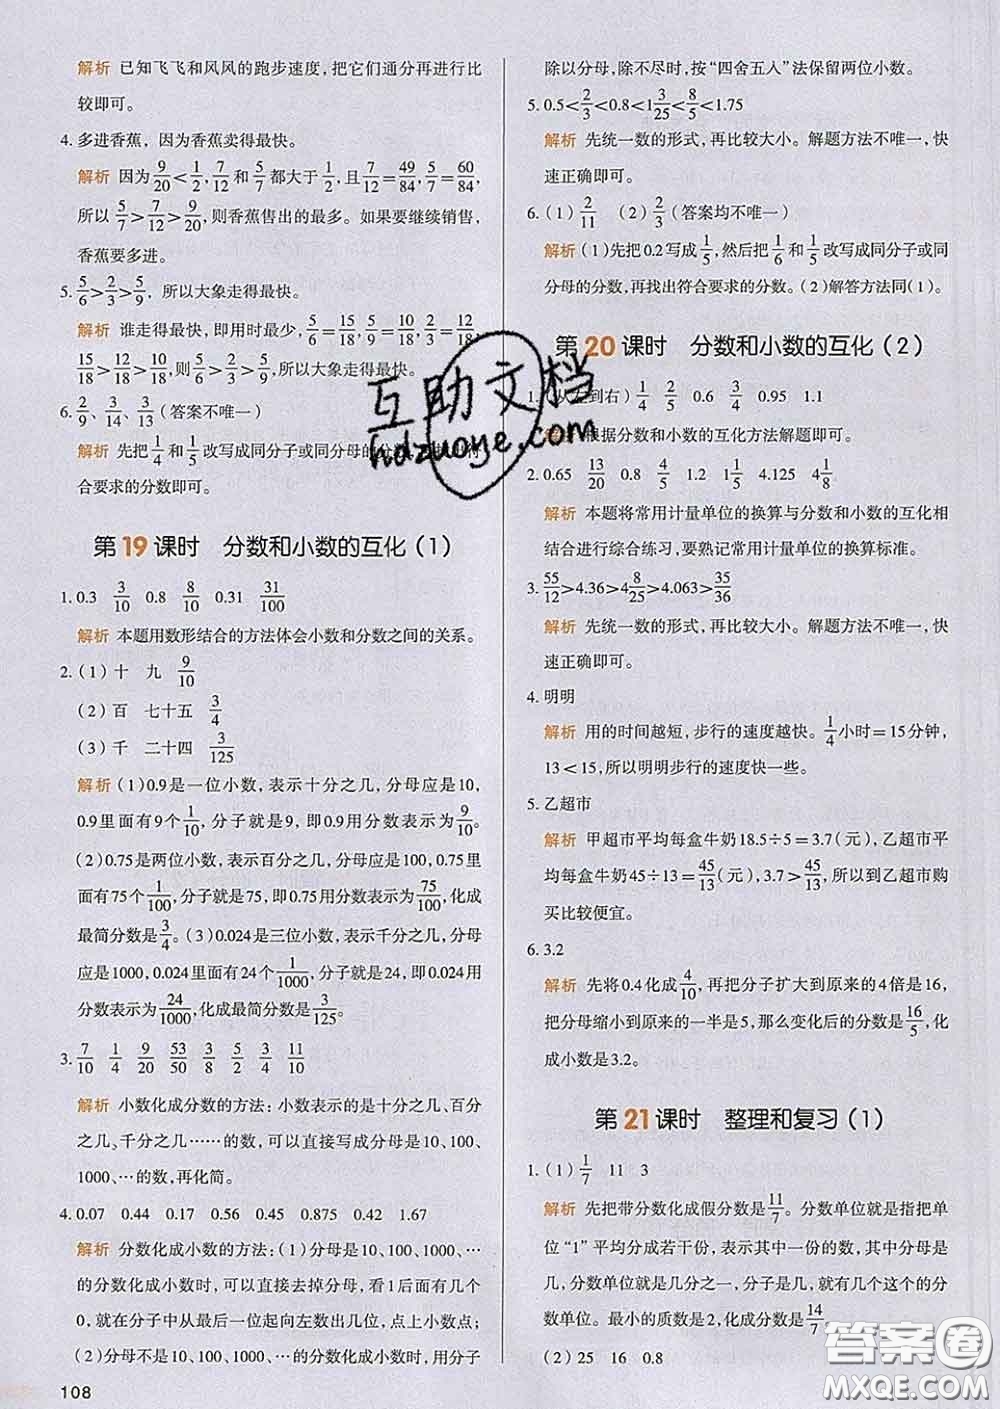 解析 已知飞飞和风风的跑步速度,把它们通分再进行比
较即可。
4. 多进香蕉,因为香蕉卖得最快。
解析 因为9/20<1/2,7/12和5/7都大于1/2,且7/12=49/84,5/7=60/84,
所以5/7>7/12>9/20,则香蕉售出的最多。如果要继续销售,
香蕉要多进。
5. 5/6>2/3>5/9,所以大象走得最快。
解析 谁走得最快,即用时最少,5/6=15/18,5/9=10/18,2/3=12/18,
15/18>12/18>10/18,则5/6>2/3>5/9,所以大象走得最快。
6. 2/9、3/14、3/13(答案不唯一)
解析 先把1/4和1/5改写成同分子或同分母的分数,
合要求的分数即可。
第19课时 分数和小数的互化(1)
1. 0.3 3/10 0.8 8/10 0.31 31/100
解析 本题用数形结合的方法体会小数和分数之间的关系。
2. (1)十 九 9/10
(2)百 七十五 3/4
(3)千 二十四 3/125
解析 (1)0.9是一位小数,表示十分之几,分母应是10,
0.9里面有9个1/10,分子就是9,即0.9用分数表示为9/10。
(2)0.75是两位小数,表示百分之几,分母应是100,0.75里
面有75个1/100,分子就是75,即0.75用分数表示为75/100,化成
最简分数是3/4。(3)0.024是三位小数,表示千分之几,分母
应是1000,0.024里面有24个1/1000,分子就是24,即0.024用
分数表示为24/1000,化成最简分数是3/125。
3. 7/10 1/4 9/20 53/50 3/8 5/2 3/4 11/10
解析 小数化成分数的方法:小数表示的是十分之几、百分
之几、千分之几……的数,可以直接写成分母是10、100、
1000、…的数,再化简。
4. 0.07 0.44 0.17 0.56 0.45 0.875 0.42 1.67
解析 分数化成小数的方法:(1)分母是10、100、1000、…
的分数化成小数时,可以直接去掉分母,看1后面有几个
0,就在分子中从最后一位起向左数出几位,点上小数点;
(2)分母不是10、100、1000、…的分数化成小数时,用分子
108
除以分母,除不尽时,按“四舍五人”法保留两位小数。
5. 0.5<2/3<0.8<1 3/25<8/5<1.75
解析 先统一数的形式,再比较大小。解题方法不唯一,快
速正确即可。
6. (1)2/11 (2)2/3(答案均不唯一)
解析 (1)先把0.2写成1/5,然后把1/6和1/5改写成同分子或同
分母的分数,再找出符合要求的分数。(2)解答方法同(1)。
第20课时 分数和小数的互化(2)
1. (从左到右)1/4 2/5 0.6 3/4 0.95 1.1
解析 根据分数和小数的互化方法解题即可。
2. 0.65 13/20 0.8 4/5 1.2 1 1/5 4.125 4 1/8
解析 本题将常用计量单位的换算与分数和小数的互化相
结合进行综合练习,要熟记常用计量单位的换算标准。
3. 55/12>4.36>4 8/25>4.063>35/36
解析 先统一数的形式,再比较大小。解题方法不唯一,快
速正确即可。
4. 明明
解析 用的时间越短,步行的速度越快。1/4小时=15分钟,
13<15,所以明明步行的速度快一些。
5. 乙超市
解析 甲超市平均每盒牛奶18.5÷5=3.7(元),乙超市平
均每盒牛奶45÷13=45/13(元),3.7>45/13,所以到乙超市购
买比较便宜。
6. 3.2
解析 先将0.4化成4/10,再把分子扩大到原来的4倍是16,
把分母缩小到原来的一半是5,那么变化后的分数是16/5,化
成小数是3.2。
第21课时 整理和复习(1)
1. (1)1/7 11 3
解析 先把带分数化成假分数是11/7。分数单位就是把单
位“1”平均分成若干份,表示其中一份的数,分母是
几,分数单位就是几分之一,分子是几,就有几个这个的分
数单位。最小的质数是2,化成分数是14/7。
(2)25 16 0.8
互助文档
hdzuoye.com
答案圈
MXQE.COM